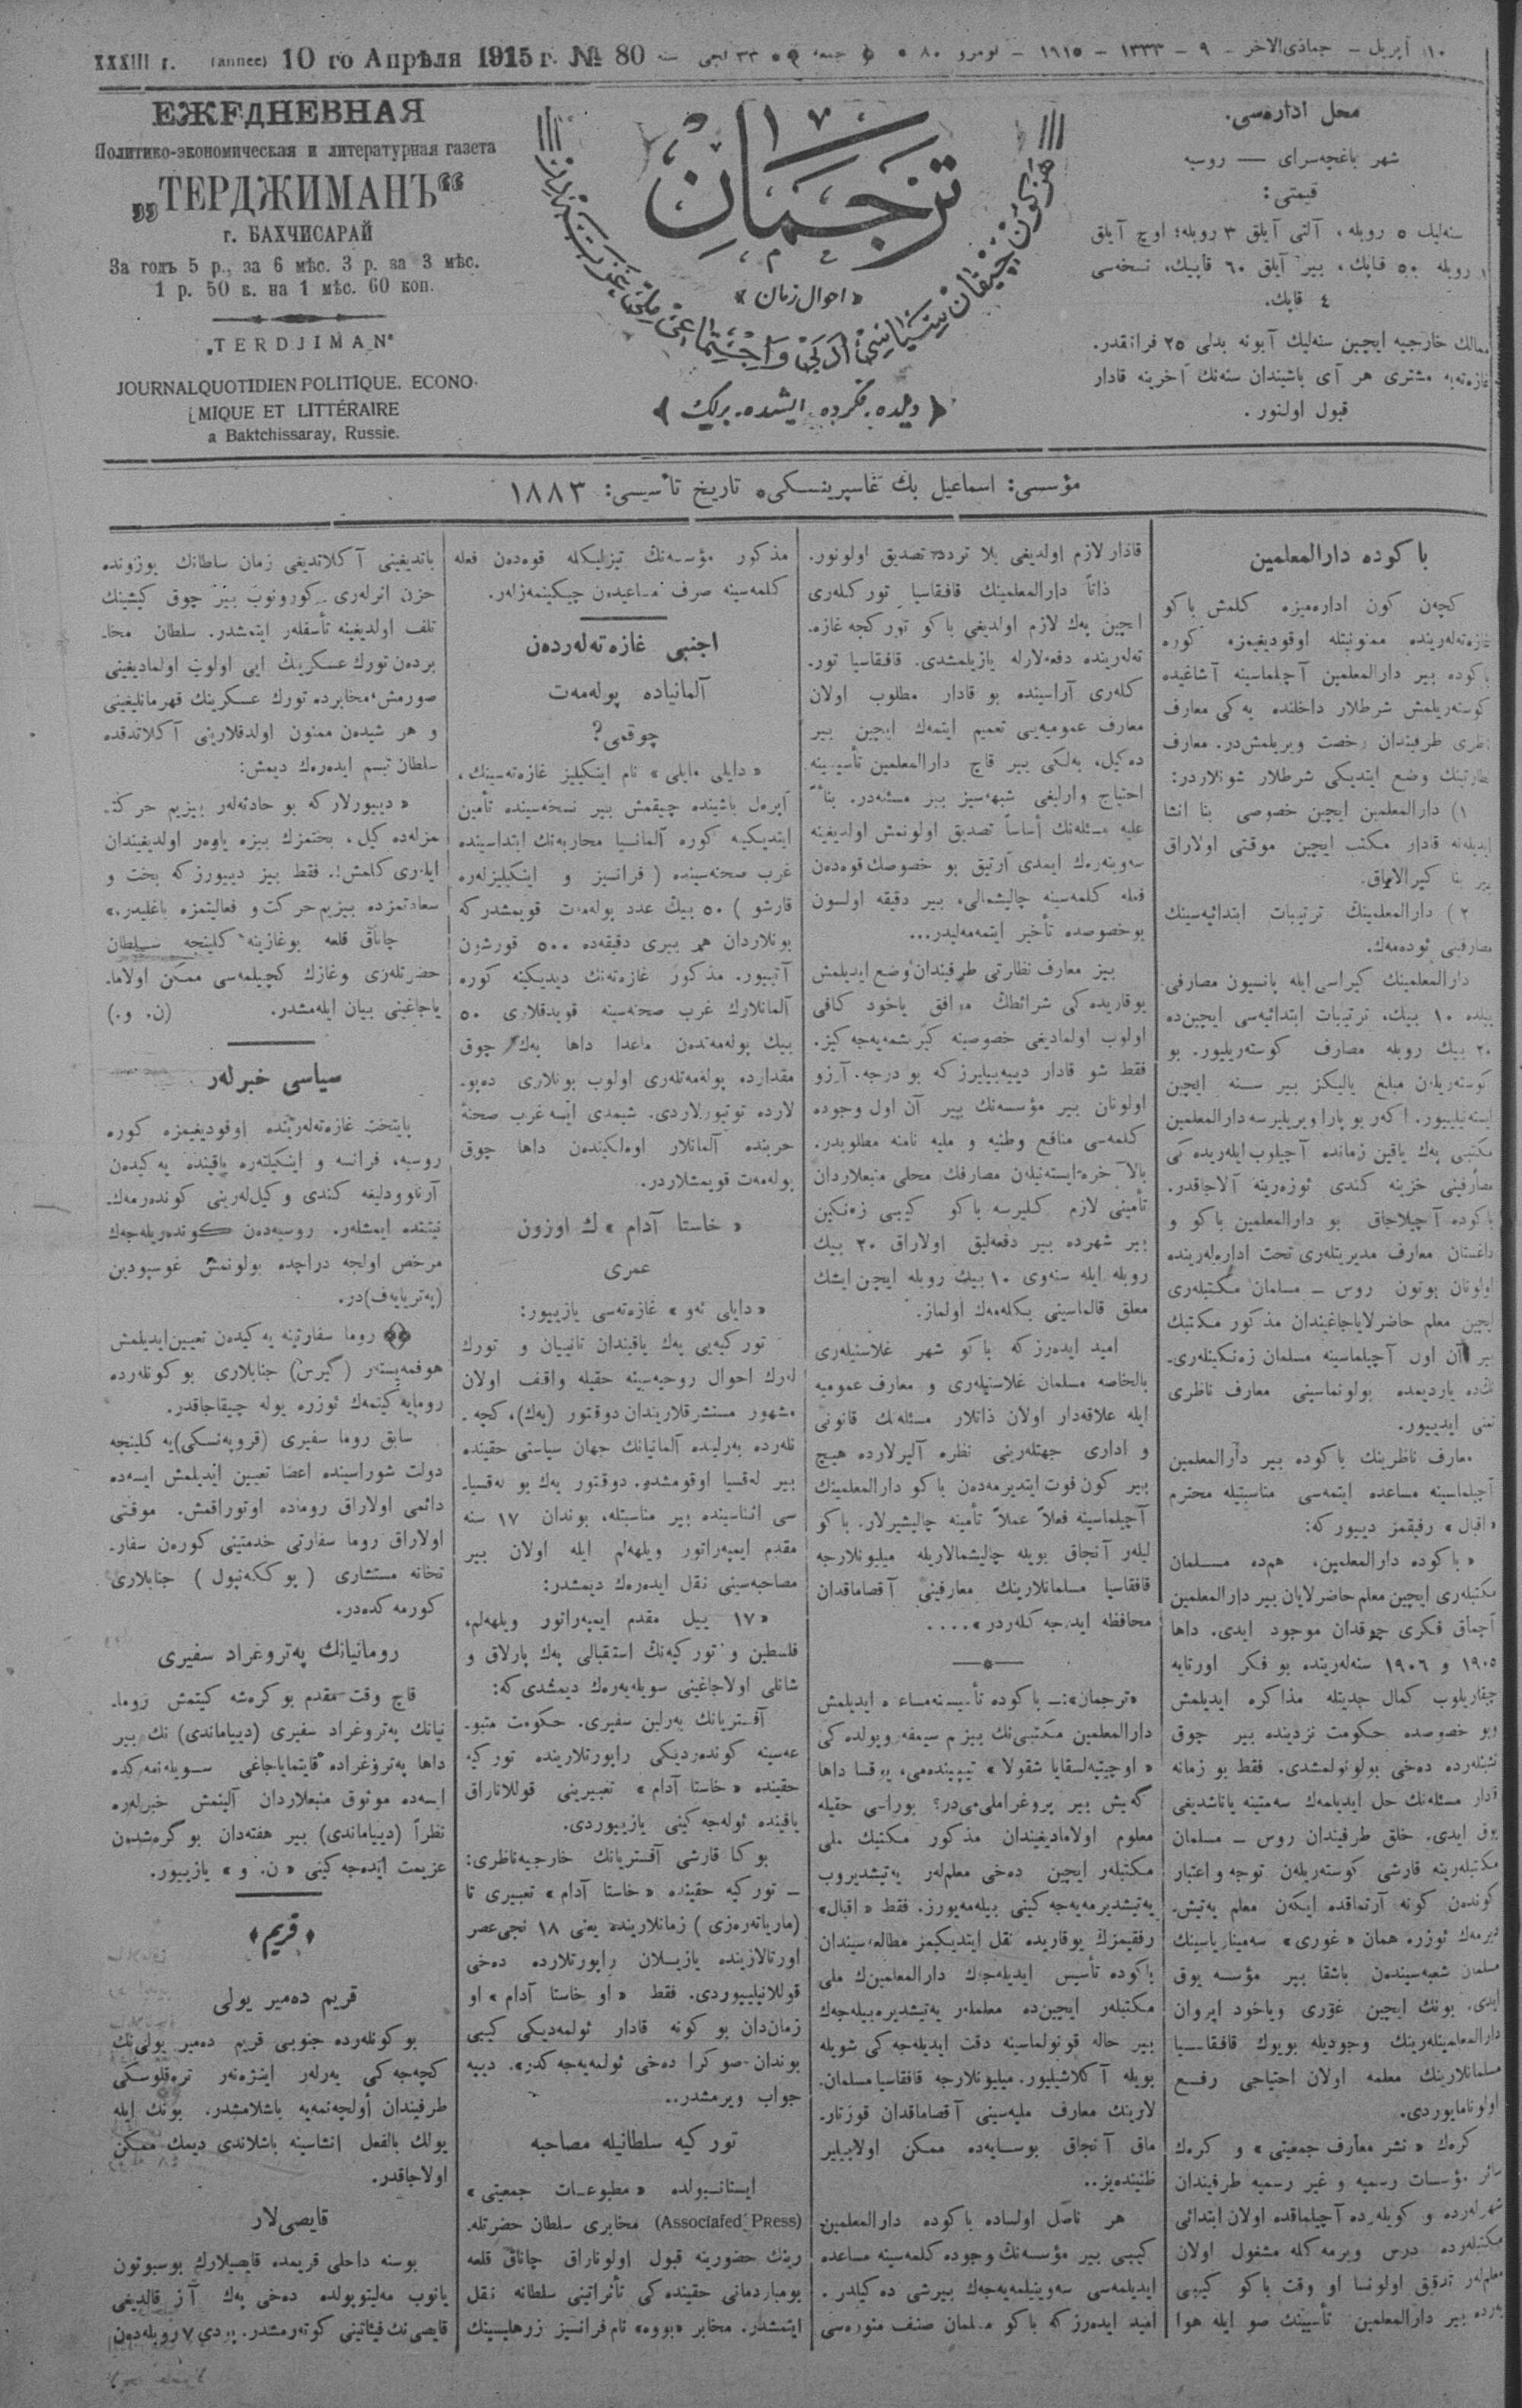 XXXIII г. (année) 10 го Апрѣля 1915 г. № 80 سنه ۳۳ نجی ﴿ جمعه ﴾ نومرو ۸۰ – ۱۹۱۵ – ۱۳۳۳ – ۹ – جماذی‌الاخر – ۱۰ آپریل
ЕЖЕДНЕВНАЯ
Политико-экономическая и литературная газета
„ТЕРДЖИМАНЪ“
г. БАХЧИСАРАЙ
За годъ 5 р., за 6 мѣс. 3 р. за 3 мѣс.
1 р. 50 к. на 1 мѣс. 60 коп.
„TERDJIMAN“
JOURNAL QUOTIDIEN POLITIQUE. ECONO-
MIQUE ET LITTÉRAIRE
a Baktchissaray, Russie.
ترجمان
«احوال زمان»
هر كون چیقان سیاسی، ادبی و اجتماعی ملی غزته‌در
﴿ دلده، فكرده، ایشده، برلك ﴾
محل اداره‌سی.
شهر باغچه‌سرای — روسیه
قیمتی:
سنه‌لیك ٥ روبله، آلتی آیلق ۳ روبله؛ اوچ آیلق
۱ روبله ٥۰ قاپك، بیر آیلق ٦۰ قاپیك، نسخه‌سی
٤ قاپك.
ممالك خارجیه ایچین سنه‌لیك آبونه بدلی ۲٥ فرانقدر.
غازه‌ته‌یه مشتری هر آی باشیندان سنه‌نك آخرینه قادار
قبول اولنور.
مؤسسی: اسماعیل بك غاسپرینسكی، تاریخ تأسیسی: ۱۸۸۳
باكوده دارالمعلمین
كچه‌ن كون اداره‌میزه كلمش باكو
غازه‌ته‌لرینده ممنونیتله اوقودیغیمزه كوره
باكوده بیر دارالمعلمین آچلماسینه آشاغیده
كوسته‌ریلمش شرطلار داخلنده یه‌كی معارف
ناظری طرفیندان رخصت ویریلمش‌در. معارف
نظارتینك وضع ایتدیكی شرطلار شونلاردر:
۱) دارالمعلمین ایچین خصوصی بنا انشا
ایدیله‌نه قادار مكتب ایچین موقتی اولاراق
بیر بنا كیرالاماق.
۲) دارالمعلمینك ترتیبات ابتدائیه‌سینك
مصارفینی ئوده‌مه‌ك.
دارالمعلمینك كیراسی ایله پانسیون مصارفی
ییلده ۱۰ بیك، ترتیبات ابتدائیه‌سی ایچین‌ده
۲۰ بیك روبله مصارف كوسته‌ریلیور. بو
كوسته‌ریلن مبلغ یالیكز بیر سنه ایچین
ایسته‌نیلییور. اكه‌ر بو پارا ویریلیرسه دارالمعلمین
مكتبی په‌ك یاقین زمانده آچیلوب ایله‌ریده كی
مصارفینی خزینه كندی ئوزه‌رینه آلاجاقدر.
باكوده آچیلاجاق بو دارالمعلمین باكو و
داغستان معارف مدیریتله‌ری تحت اداره‌له‌رینده
اولونان بوتون روس — مسلمان مكتبله‌ری
ایچین معلم حاضرلایاجاغیندان مذكور مكتبك
بیر آن اول آچیلماسینه مسلمان زه‌نكینله‌ری-
نك‌ده یاردیمده بولونماسینی معارف ناظری
تمنی ایدییور.
معارف ناظرینك باكوده بیر دارالمعلمین
آچیلماسینه مساعده ایتمه‌سی مناسبتیله محترم
«اقبال» رفیقمز دییور كه:
«باكوده دارالمعلمین، هم‌ده مسلمان
مكتبله‌ری ایچین معلم حاضرلایان بیر دارالمعلمین
آچماق فكری چوقدان موجود ایدی. داها
۱۹۰٥ و ۱۹۰٦ سنه‌له‌رینده بو فكر اورتایه
چیقاریلوب كمال جدیتله مذاكره ایدیلمش
وبو خصوصده حكومت نزدینده بیر چوق
تشبثلرده ده‌خی بولونولمشدی. فقط بو زمانه
قدار مسئله‌نك حل ایدیلمه‌ك سه‌متینه یاناشدیغی
یوق ایدی. خلق طرفیندان روس — مسلمان
مكتبلرینه قارشی كوسته‌ریله‌ن توجه و اعتبار
كونده‌ن كونه آرتماقده ایكه‌ن معلم یه‌تیش-
دیرمه‌ك ئوزره همان «غوری» سه‌میناریاسینك
مسلمان شعبه‌سینده‌ن باشقا بیر مؤسسه یوق
ایدی. بونك ایچین غوری ویاخود ایروان
دارالمعلمینله‌رینك وجودیله بویوك قافقاسیا
مسلمانلارینك معلمه اولان احتیاجی رفع
اولونامایوردی.
كره‌ك «نشر معارف جمعیتی» و كره‌ك
سائر مؤسسات رسمیه و غیر رسمیه طرفیندان
شهرله‌رده و كویله‌رده آچیلماقده اولان ابتدائی
مكتبله‌رده درس ویرمه كله مشغول اولان
معلم‌لر تدقیق اولونسا او وقت باكو كیبی
یه‌رده بیر دارالمعلمین تأسینك صو ایله هوا
قادار لازم اولدیغی بلا تردد تصدیق اولونور.
ذاتاً دارالمعلمینك قافقاسیا توركله‌ری
ایچین په‌ك لازم اولدیغی باكو توركجه غازه-
ته‌له‌رینده دفعه‌لارله یازیلمشدی. قافقاسیا تور-
كله‌ری آراسینده بو قادار مطلوب اولان
معارف عمومیه‌یی تعمیم ایتمه‌ك ایچین بیر
ده‌كیل، به‌لكی بیر قاچ دارالمعلمین تأسیسینه
احتیاج وارلیغی شبهه‌سیز بیر مسئله‌در. بناءً
علیه مسئله‌نك أساساً تصدیق اولونمش اولدیغینه
سه‌وینه‌ره‌ك ایمدی آرتیق بو خصوصك قوه‌ده‌ن
فعله كلمه‌سینه چالیشمالی، بیر دقیقه اولسون
بوخصوصده تأخیر ایتمه‌مه‌لیدر...
بیز معارف نظارتی طرفیندان وضع ایدیلمش
یوقاریده كی شرائطك موافق یاخود كافی
اولوب اولمادیغی خصوصینه كیریشمه‌یه‌جه كیز.
فقط شو قادار دییه‌بیلیرز كه بو درجه آرزو
اولونان بیر مؤسسه‌نك بیر آن اول وجوده
كلمه‌سی منافع وطنیه و ملیه نامنه مطلوبدر.
بالآخره ایسته‌نیله‌ن مصارفك محلی منبعلاردان
تأمینی لازم كلیرسه باكو كیبی زه‌نكین
بیر شهرده بیر دفعه‌لیق اولاراق ۲۰ بیك
روبله ایله سنه‌وی ۱۰ بیك روبله ایچن ایشك
معلق قالماسینی بكله‌مه‌ك اولماز.
امید ایده‌رز كه باكو شهر غلاسنیله‌ری
بالخاصه مسلمان غلاسنیله‌ری و معارف عمومیه
ایله علاقه‌دار اولان ذاتلار مسئله‌نك قانونی
و اداری جهتله‌رینی نظره آلیرلارده هیچ
بیر كون فوت ایتدیرمه‌ده‌ن باكو دارالمعلمینك
آچیلماسینه فعلاً عملاً تأمینه چالیشیرلار. باكو
لیله‌ر آنجاق بویله چالیشمالاریله میلیونلارجه
قافقاسیا مسلمانلارینك معارفینی آقصاماقدان
محافظه ایده‌جه كله‌ردر»....
«ترجمان»:— باكوده تأسیسنه مساعده ایدیلمش
دارالمعلمین مكتبی‌نك بیزم سیمفه‌روپولده كی
«اوچیتیه‌لسقایا شقولا» تیپینده‌می، یوقسا داها
گه‌نیش بیر پروغراملی‌می‌در؟ بوراسی حقیله
معلوم اولامادیغیندان مذكور مكتبك ملی
مكتبله‌ر ایچین ده‌خی معلم‌له‌ر یه‌تیشدیروب
یه‌تیشدیرمه‌یه‌جه كینی بیله‌مه‌یورز. فقط «اقبال»
رفقیمزك یوقاریده نقل ایتدیكیمز مطالعه‌سیندان
باكوده تأسیس ایدیله‌جه‌ك دارالمعلمین‌ك ملی
مكتبله‌ر ایچین‌ده معلمله‌ر یه‌تیشدیره‌بیله‌جه‌ك
بیر حاله قونولماسینه دقت ایدیله‌جه كی شویله
بویله آكلاشیلیور. میلیونلارجه قافقاسیا مسلمان-
لارینك معارف ملیه‌سینی آقصاماقدان قورتار-
ماق آنجاق بوسایه‌ده ممكن اولابیلیر
ظنینده‌یز..
هر ناصل اولساده باكوده دارالمعلمین
كیبی بیر مؤسسه‌نك وجوده كلمه‌سینه مساعده
ایدیلمه‌سی سه‌وینیلمه‌یه‌جه‌ك بیرشی ده‌كیلدر.
امید ایده‌رز كه باكو مسلمان صنف منوره‌سی
مذكور مؤسسه‌نك تیزلیكله قوه‌ده‌ن فعله
كلمه‌سینه صرف مساعیدن چیكینمه‌زله‌ر.
اجنبی غازه‌ته‌له‌رده‌ن
آلمانیاده پوله‌مه‌ت
چوقمی؟
«دایلی مایلی» نام اینكیلیز غازه‌ته‌سینك،
آپره‌ل باشینده چیقمش بیر نسخه‌سینده تأمین
ایتدیكینه كوره آلمانیا محاربه‌نك ابتداسینده
غرب صحنه‌سینده (فرانسیز و اینكیلیزله‌ره
قارشو) ٥۰ بیك عدد پوله‌مه‌ت قویمشدر كه
بونلاردان هر بیری دقیقه‌ده ٥۰۰ قورشون
آتییور. مذكور غازه‌ته‌نك دیدیكینه كوره
آلمانلارك غرب صحنه‌سینه قویدقلاری ٥۰
بیك پوله‌مه‌تده‌ن ماعدا داها په‌ك چوق
مقدارده پوله‌مه‌تله‌ری اولوب بونلاری ده‌پو-
لارده توتیورلاردی. شیمدی ایسه غرب صحنهٔ
حربنده آلمانلار اوه‌لكیندن داها چوق
پوله‌مه‌ت قویمشلاردر.
«خاستا آدام»ك اوزون
عمری
«دایلی نه‌و» غازه‌ته‌سی یازییور:
توركیه‌یی په‌ك یاقیندان تانییان و تورك
له‌رك احوال روحیه‌سینه حقیله واقف اولان
مشهور مستشرقلاریندان دوقتور (یه‌ك)، كچه-
نله‌رده به‌رلینده آلمانیانك جهان سیاستی حقینده
بیر له‌قسیا اوقومشدی. دوقتور یه‌ك بو له‌قسیا-
سی اثناسینده بیر مناسبتله، بوندان ۱۷ سنه
مقدم ایمپه‌راتور ویلهه‌لم ایله اولان بیر
مصاحبه‌سینی نقل ایده‌ره‌ك دیمشدر:
«۱۷ ییل مقدم ایمپه‌راتور ویلهه‌لم،
فلسطین و توركیه‌نك استقبالی په‌ك پارلاق و
شانلی اولاجاغینی سویله‌یه‌ره‌ك دیمشدی كه:
آفستریانك به‌رلین سفیری. حكومت متبو-
عه‌سینه كونده‌ردیكی راپورتلارینده توركیه
حقینده «خاستا آدام» تعبیرینی قوللاناراق
یاقینده ئوله‌جه كینی یازییوردی.
بوكا قارشی آفستریانك خارجیه ناظری:
— توركیه حقینده «خاستا آدام» تعبیری تا
(ماریاته‌ره‌زی) زمانلارینده یعنی ۱۸ نجی عصر
اورتالارینده یازیلان راپورتلارده ده‌خی
قوللانیلییوردی. فقط «او خاستا آدام» او
زمان‌دان بو كونه قادار ئولمه‌دیكی كیبی
بوندان صوكرا ده‌خی ئولمه‌یه‌جه كدر». دییه
جواب ویرمشدر..
توركیه سلطانیله مصاحبه
ایستانبولده «مطبوعات جمعیتی»
(Associafed Press) مخابری سلطان حضرتله-
رینك حضورینه قبول اولوناراق چاناق قلعه
بومباردمانی حقینده كی تأثراتینی سلطانه نقل
ایتمشدر. مخابر «بووه» نام فرانسیز زرهلیسینك
باتدیغینی آكلاتدیغی زمان سلطانك یوزونده
حزن اثرله‌ری كورونوب بیر چوق كیشینك
تلف اولدیغینه تأسفله‌ر ایتمشدر. سلطان مخا-
برده‌ن تورك عسكرینك ایی اولوب اولمادیغینی
صورمش، مخابرده تورك عسكرینك قهرمانلیغینی
و هر شیده‌ن ممنون اولدقلارینی آكلاتدقده
سلطان تبسم ایده‌ره‌ك دیمش:
«دییورلار كه بو حادثه‌له‌ر بیزیم حركتـ-
مزله‌ده كیل، بختمزك بیزه یاوه‌ر اولدیغیندان
ایله‌ری كلمش!. فقط بیز دییورز كه بخت و
سعادتمزده بیزیم حركت و فعالیتمزه باغلیدر.»
چاناق قلعه بوغازینه كلینجه سلطان
حضرتله‌ری وغازك كچیلمه‌سی ممكن اولاما-
یاجاغینی بیان ایله‌مشدر. (ن. و.)
سیاسی خبرله‌ر
پایتخت غازه‌ته‌له‌رینده اوقودیغیمزه كوره
روسیه، فرانسه و اینكیلته‌ره یاقینده یه‌كیده‌ن
آرناوودلیغه كندی وكیل‌له‌رینی كونده‌رمه‌ك
نیتنده ایمشله‌ر. روسیه‌ده‌ن كونده‌ریله‌جه‌ك
مرخص اولجه دراچده بولونمش غوسپودین
(پ‍ه‌تریایه‌ف)در.
روما سفارتینه یه‌كیده‌ن تعیین ایدیلمش
هوفمه‌یسته‌ر (گیرس) جنابلاری بو كونله‌رده
رومایه كیتمه‌ك ئوزره یوله چیقاجاقدر.
سابق روما سفیری (قروپه‌نسكی)یه كلینجه
دولت شوراسینده اعضا تعیین ایدیلمش ایسه‌ده
دائمی اولاراق روماده اوتوراقمش. موقتی
اولاراق روما سفارتی خدمتینی كوره‌ن سفار-
تخانه مستشاری جنابلاری
كورمه كده‌در.
رومانیانك په‌تروغراد سفیری
قاچ وقت مقدم بوكره‌شه كیتمش روما-
نیانك په‌تروغراد سفیری (دییاماندی) نك بیر
داها په‌تروغراده قایتمایاجاغی سویله‌نمه كده
ایسه‌ده موثوق منبعلاردان آلینمش خبرله‌ره
نظراً (دییاماندی) بیر هفته‌دان بوكره‌شده‌ن
عزیمت ایده‌جه كینی «ن. و» یازییور.
﴿قریم﴾
قریم ده‌میر یولی
بو كونله‌رده جنوبی قریم ده‌میر یولی‌نك
كچه‌جه كی یه‌رله‌ر اینژه‌نه‌ر
طرفیندان أولچه‌نمه‌یه باشلامشدر. بونك ایله
یولك بالفعل إنشاسینه باشلاندی دیمك ممكن
اولاجاقدر.
قایصی‌لار
بوسنه داخلی قریمده قایصیلارك بوسبوتون
یانوب مه‌لیتوپولده ده‌خی په‌ك آز قالدیغی
قایصی‌نك فیئاتینی كوته‌رمشدر. پودی ۷ روبله‌ده‌ن